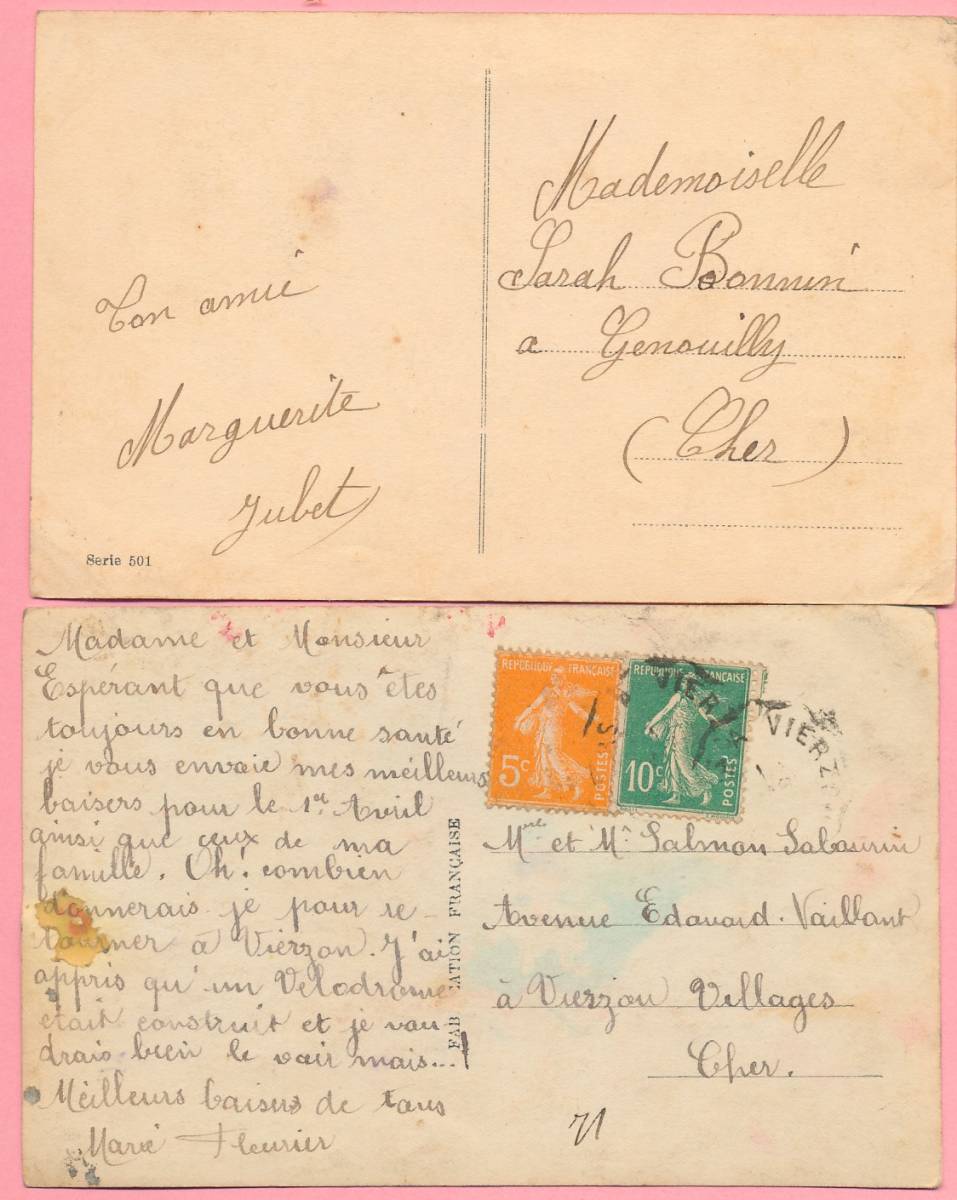 Ton amie
Marguerite
Jubet
Serie 501
Mademoiselle
Sarah Bonnin
a Genouilly
(Cher)
Madame et Monsieur
Espérant que vous êtes
toujours en bonne santé
je vous envoie mes meilleurs
baisers pour le 1er Avril
ainsi que ceux de ma
famille. Oh! combien
donnerais-je pour re-
tourner à Vierzon. J'ai
appris qu'un Velodrome
était construit et je vou-
drais bien le voir mais...
Meilleurs baisers de tous
Marie Fleurier
FABRICATION FRANÇAISE
REPUBLIQUE FRANÇAISE
5c
POSTES
REPUBLIQUE FRANÇAISE
10c
POSTES
VIERZ
et Mr Salmon Sabourin
Avenue Edouard-Vaillant
à Vierzon Villages
Cher.
71